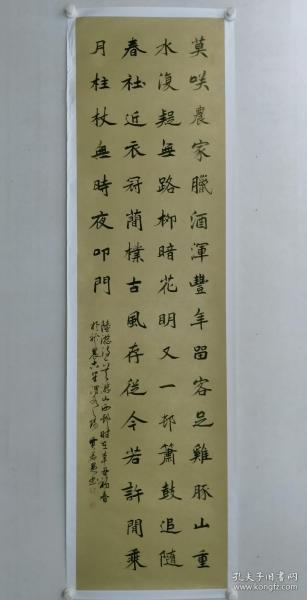 莫咲農家臘酒渾豐年留客足雞豚山重
水復疑無路柳暗花明又一邨簫鼓追隨
春社近衣冠蕳樸古風存從今若許閒乘
月柱杖無時夜叩門
陸游詩 游山西邨時在辛丑初春
孔夫子旧书网
kongfz.com